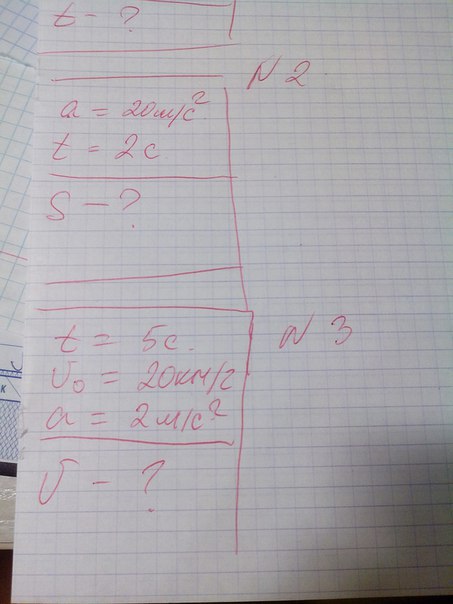 t - ?
N 2
a = 20м/с²
t = 2с
S - ?
N 3
t = 5с.
υ₀ = 20км/г
a = 2м/с²
υ - ?